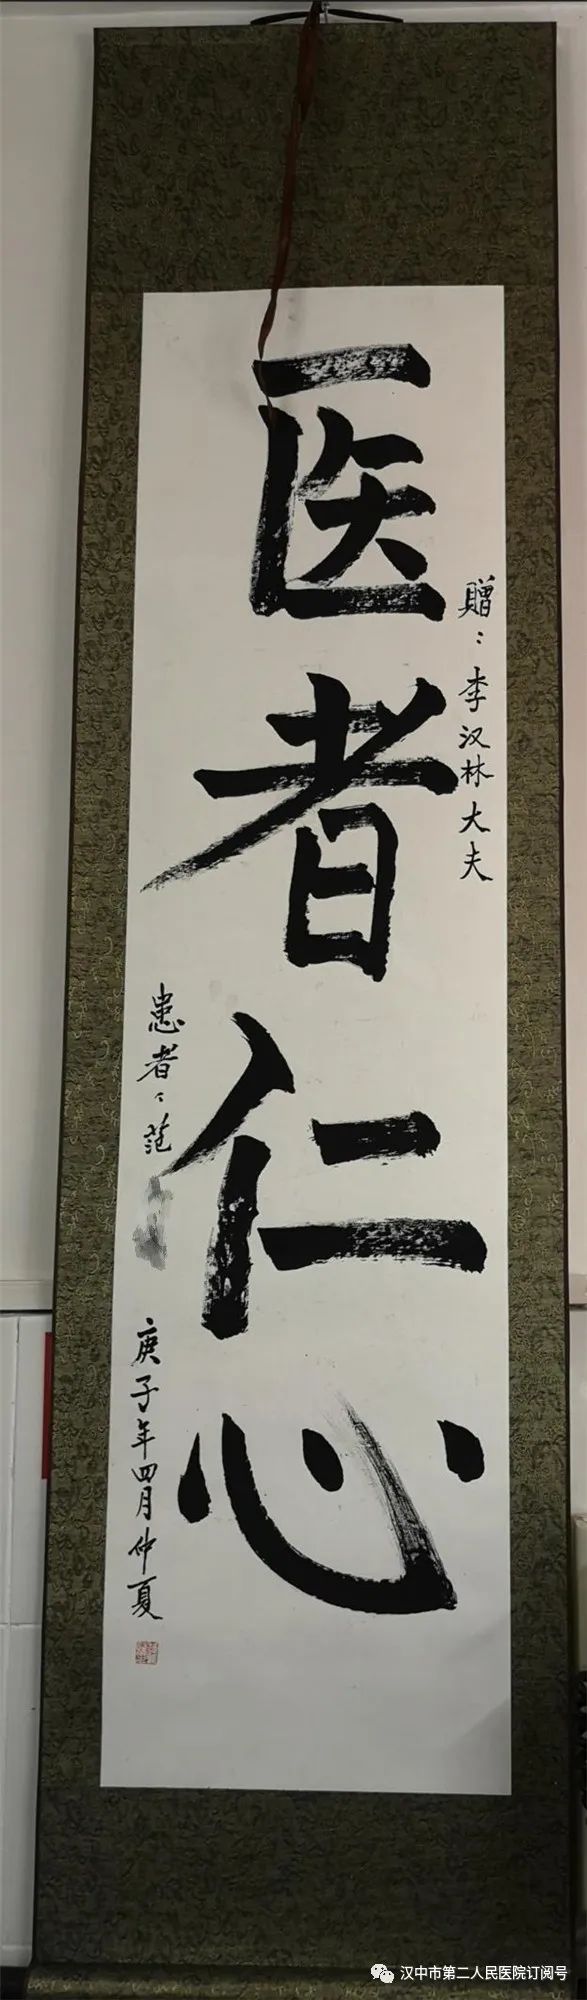 赠：李汉林大夫
医者仁心
患者：范
庚子年四月仲夏
汉中市第二人民医院订阅号